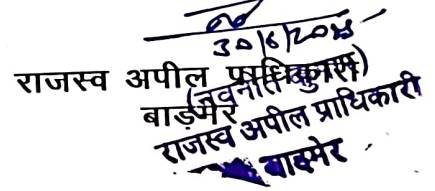 30/6/2025
राजस्व अपील प्राधिकारी
(नवनीत कुमार)
बाड़मेर
राजस्व अपील प्राधिकारी
बाड़मेर